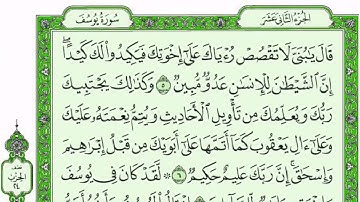 الجزء الثاني عشر
سورة يوسف
قَالَ يَٰبُنَيَّ لَا تَقۡصُصۡ رُءۡيَاكَ عَلَىٰٓ إِخۡوَتِكَ فَيَكِيدُواْ لَكَ كَيۡدًاۖ
إِنَّ ٱلشَّيۡطَٰنَ لِلۡإِنسَٰنِ عَدُوّٞ مُّبِينٞ ٥ وَكَذَٰلِكَ يَجۡتَبِيكَ
رَبُّكَ وَيُعَلِّمُكَ مِن تَأۡوِيلِ ٱلۡأَحَادِيثِ وَيُتِمُّ نِعۡمَتَهُۥ عَلَيۡكَ
وَعَلَىٰٓ ءَالِ يَعۡقُوبَ كَمَآ أَتَمَّهَا عَلَىٰٓ أَبَوَيۡكَ مِن قَبۡلُ إِبۡرَٰهِيمَ
وَإِسۡحَٰقَۚ إِنَّ رَبَّكَ عَلِيمٌ حَكِيمٞ ٦ لَّقَدۡ كَانَ فِي يُوسُفَ
الحزب
٢٤